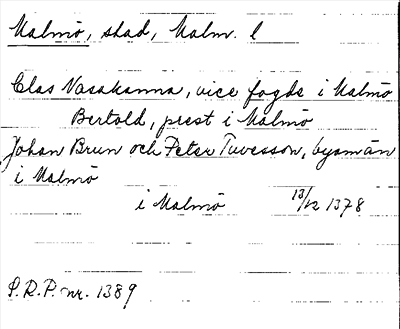 Malmö, stad, Malm. l
Clas Vasakanna, vice fogde i Malmö
Bertold, prest i Malmö
Johan Brun och Peter Tuvesson, bysmän
i Malmö
i Malmö 13/12 1378
S.R.P. nr. 1389